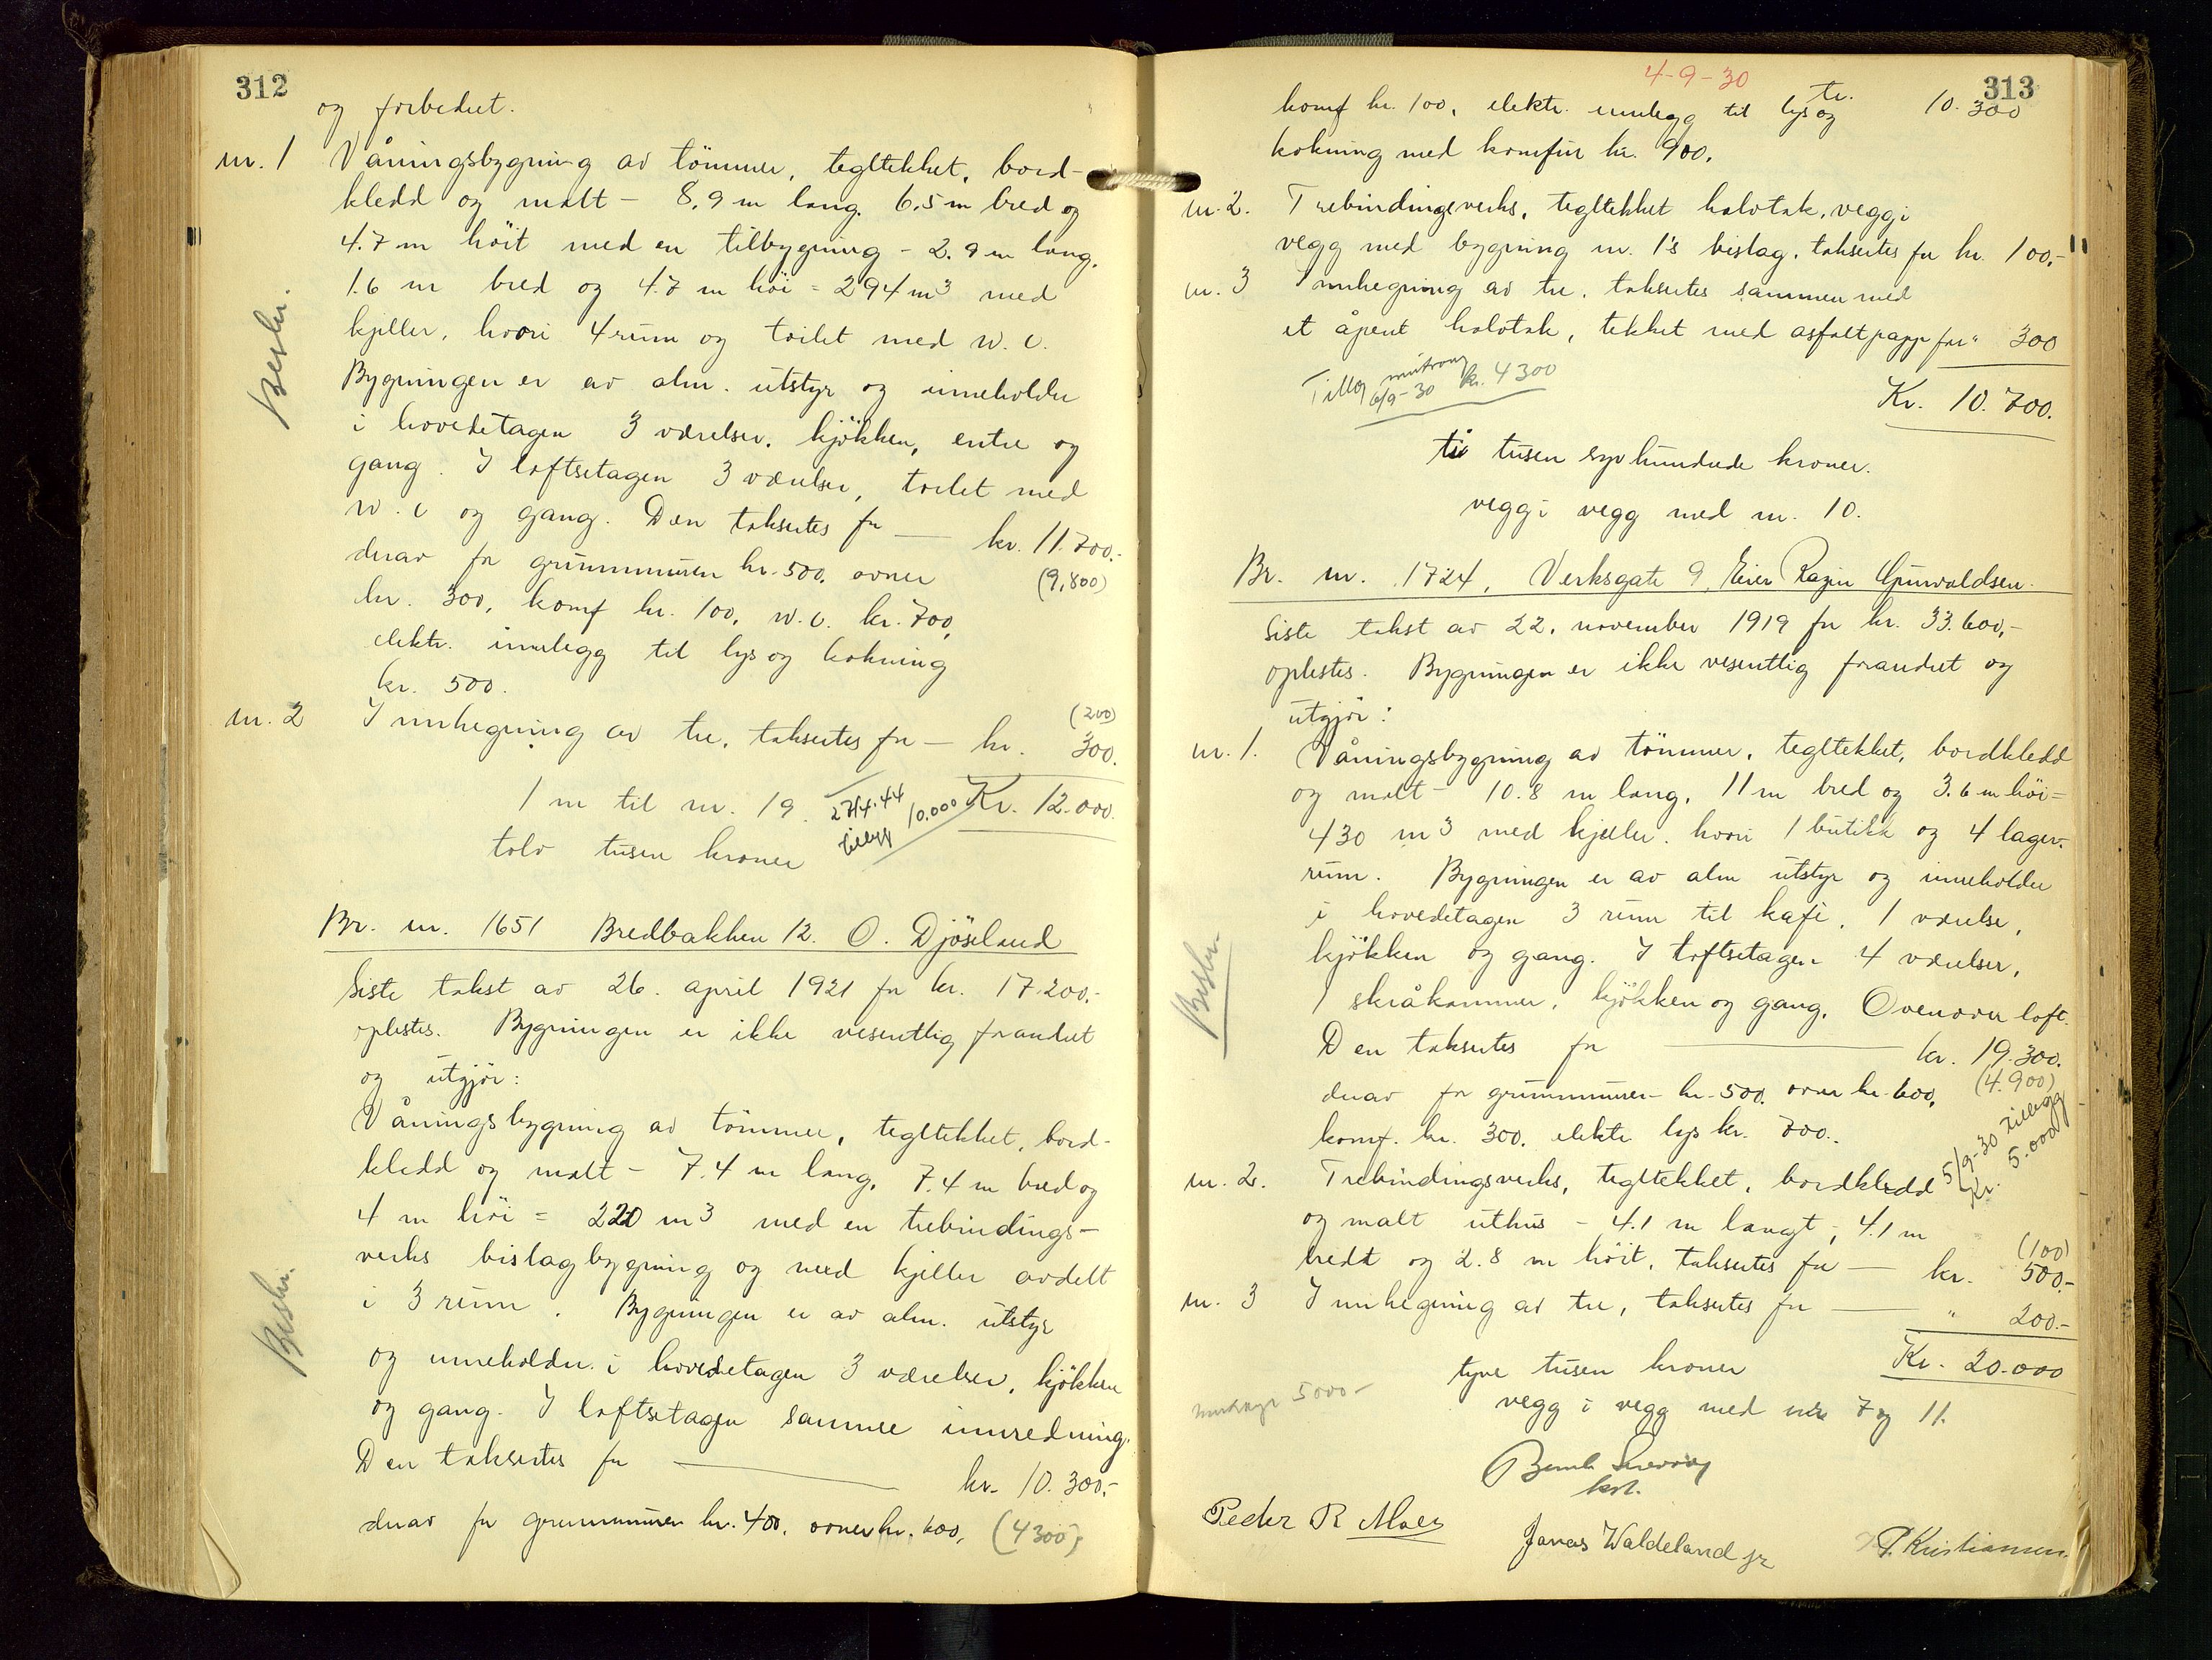 312
og forbedret.
nr. 1 Våningsbygning av tömmer, tegltekket, bord-
kledd og malt - 8,9 m lang. 6,5 m bred og
4.7 m höit med en tilbygning - 2.9 m lang.
1.6 m bred og 4.7 m höi = 294 m3 med
kjeller, hvori 4 rum og toilet med w.c.
Bygningen er av alm. utstyr og inneholder
i hovedetagen 3 værelser, kjökken, entre og
gang. I loftsetagen 3 værelser, toilet med
w.c og gang. Den taksertes for — kr. 11.700.-
derav for grunnmuren kr. 500, ovner (9,800)
kr. 300, komf kr. 100, w.c. kr. 700,
elektr. innlegg til lys og kokning
kr. 500.
Beskr.
nr. 2 Innhegning av tre, taksertes for — kr. 300.
(200)
1 m til nr. 19. Kr. 12.000.
27/4.44 tillegg 10.000
tolv tusen kroner
Br. nr. 1651 Bredbakken 12. O. Djöseland
Siste takst av 26. april 1921 for kr. 17.200.-
oplestes. Bygningen er ikke vesentlig forandret
og utgjör:
Våningsbygning av tömmer, tegltekket, bord-
kledd og malt - 7.4 m lang, 7.4 m bred og
4 m höi = 220 m3 med en trebindings-
verks bislagbygning og med kjeller avdelt
i 3 rum. Bygningen er av alm. utstyr
og inneholder i hovedetagen 3 værelser, kjökken
og gang. I loftsetagen samme innredning.
Den taksertes for — kr. 10.300.-
derav for grunnmuren kr. 400, ovner kr. 600, (4300)
Beskr.
4-9-30
313
komf kr. 100, elektr. innlegg til lys og tr. 10.300
kokning med komfur kr. 900.
nr. 2. Trebindingsverks, tegltekket halvtak, vegg i
vegg med bygning nr. 1's bislag, taksertes for kr. 100.-
nr. 3 Innhegning av tre, taksertes sammen med
et åpent halvtak, tekket med asfaltpapp for " 300
6/9-30 kr. 4300
Kr. 10.700.
ti tusen syvhundrede kroner.
vegg i vegg med nr. 10.
Br. nr. 1724, Verksgate 9, Eier Razin Gunvaldsen.
Siste takst av 22. november 1919 for kr. 33.600,-
oplestes. Bygningen er ikke vesentlig forandret og
utgjör:
nr. 1. Våningsbygning av tömmer, tegltekket, bordkledd
og malt - 10.8 m lang, 11 m bred og 3.6 m höi =
430 m3 med kjeller, hvori 1 butikk og 4 lager-
rum. Bygningen er av alm utstyr og inneholder
i hovedetagen 3 rum til kafé, 1 værelse,
kjökken og gang. I loftsetagen 4 værelser,
1 skråkammer, kjökken og gang. Ovenover loft.
Den taksertes for — kr. 19.300.
derav for grunnmuren kr. 500, ovner kr. 600, (4.900)
komf. kr. 300, elektr lys kr. 700.
5/9-30 tillegg kr. 5.000
Beskr.
nr. 2. Trebindingsverks, tegltekket, bordkledd
og malt uthus - 4.1 m langt, 4.1 m
bredt og 2.8 m höit, taksertes for — kr. 500.-
(100)
nr. 3 Innhegning av tre, taksertes for — " 200.-
Kr. 20.000
tyve tusen kroner
5000-
vegg i vegg med nr 7 og 11.
Peder R Moen
Jonas Waldeland jr
P. Kristiansen